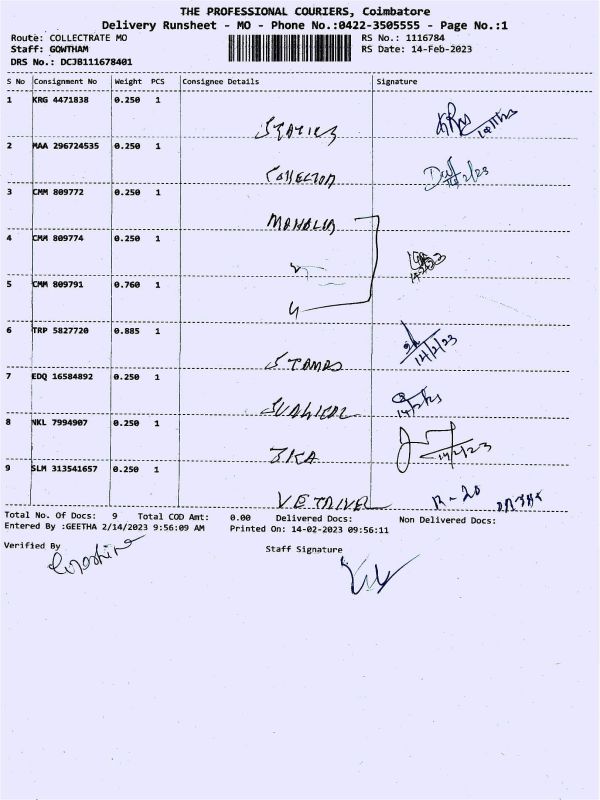 THE PROFESSIONAL COURIERS, Coimbatore
Delivery Runsheet - MO - Phone No.:0422-3505555 - Page No.:1
Route: COLLECTRATE MO
Staff: GOWTHAM
DRS No.: DCJB111678401
RS No.: 1116784
RS Date: 14-Feb-2023
S No Consignment No Weight PCS Consignee Details Signature
1 KRG 4471838 0.250 1
2 MAA 296724535 0.250 1
COLLECTOR
3 CMM 809772 0.250 1
4 CMM 809774 0.250 1
5 CMM 809791 0.760 1
6 TRP 5827720 0.885 1
STAMPS 14/2/23
7 EDQ 16584892 0.250 1
SURGICAL
8 NKL 7994907 0.250 1
14/2/23
9 SLM 313541657 0.250 1
VETRIVEL R-20
Total No. Of Docs: 9 Total COD Amt: 0.00 Delivered Docs: Non Delivered Docs:
Entered By :GEETHA 2/14/2023 9:56:09 AM Printed On: 14-02-2023 09:56:11
Verified By Staff Signature